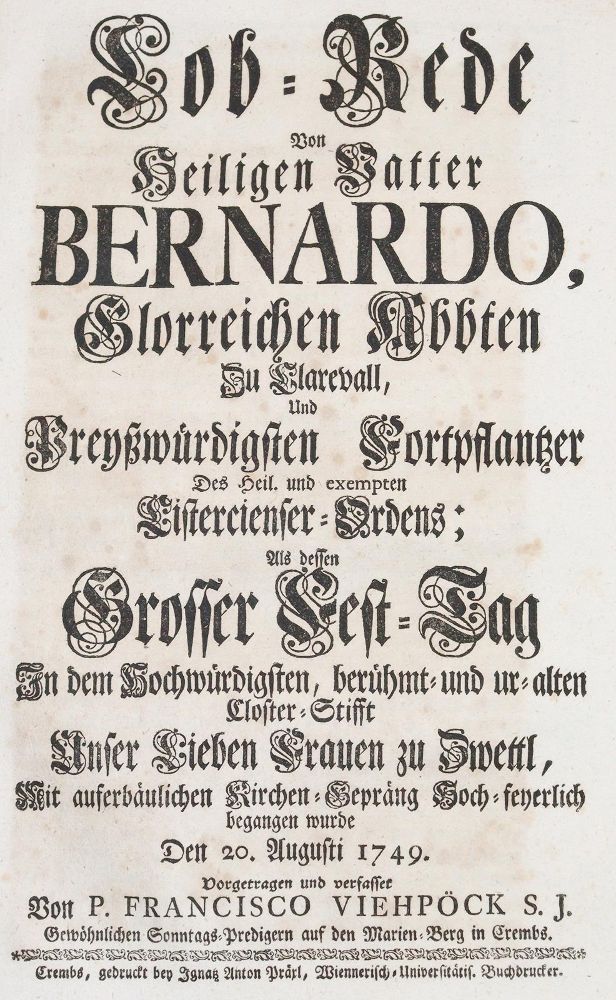 Lob-Rede
Von
Heiligen Vatter
BERNARDO,
Glorreichen Abbten
Zu Clarevall,
Und
Preyßwürdigsten Fortpflantzer
Des Heil. und exempten
Cistercienser-Ordens;
Als dessen
Grosser Fest-Tag
In dem Hochwürdigsten, berühmt-und ur-alten
Closter-Stifft
Unser Lieben Frauen zu Zwettl,
Mit auferbäulichen Kirchen-Gepräng Hoch-feyerlich
begangen wurde
Den 20. Augusti 1749.
Vorgetragen und verfasset
Von P. FRANCISCO VIEHPÖCK S. J.
Gewöhnlichen Sonntags-Predigern auf den Marien-Berg in Crembs.
Crembs, gedruckt bey Ignatz Anton Präxl, Wiennerisch-Universitätis. Buchdrucker.